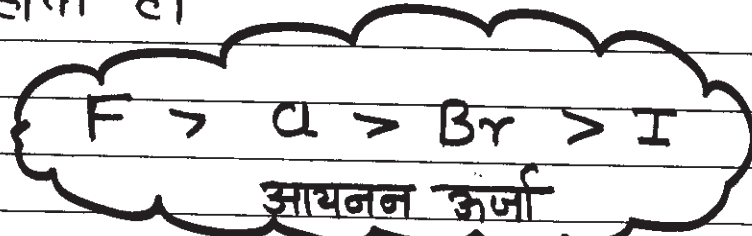 होता है।
F > Cl > Br > I
आयनन ऊर्जा